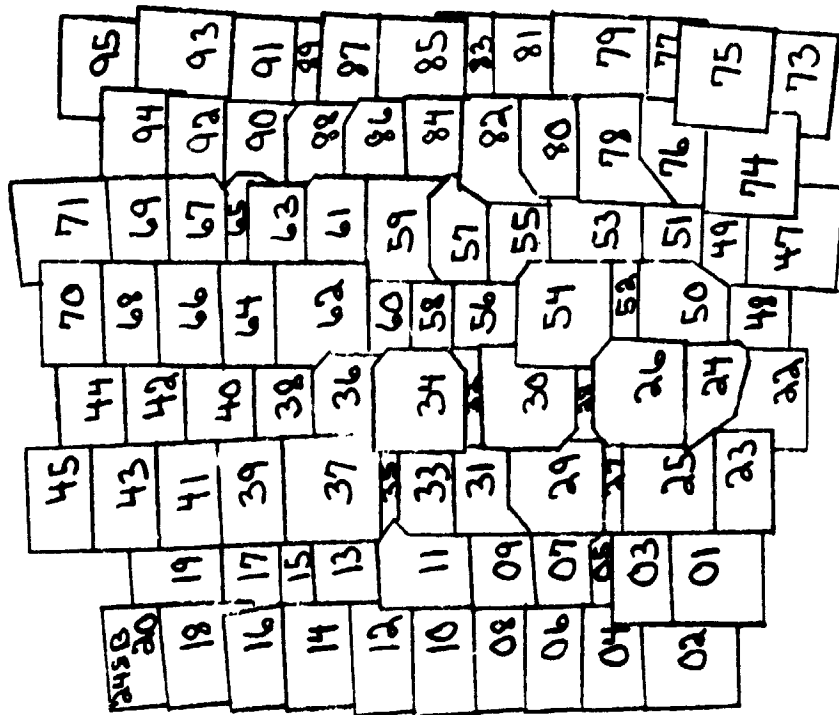 95 93 91 89 87 85 83 81 79 77 75 73
94 92 90 88 86 84 82 80 78 76 74
71 69 67 65 63 61 59 57 55 53 51 49 47
70 68 66 64 62 60 58 56 54 52 50 48
44 42 40 38 36 34 30 26 24 22
45 43 41 39 37 35 33 31 29 27 25 23
19 17 15 13 11 09 07 05 03 01
245B
20 18 16 14 12 10 08 06 04 02